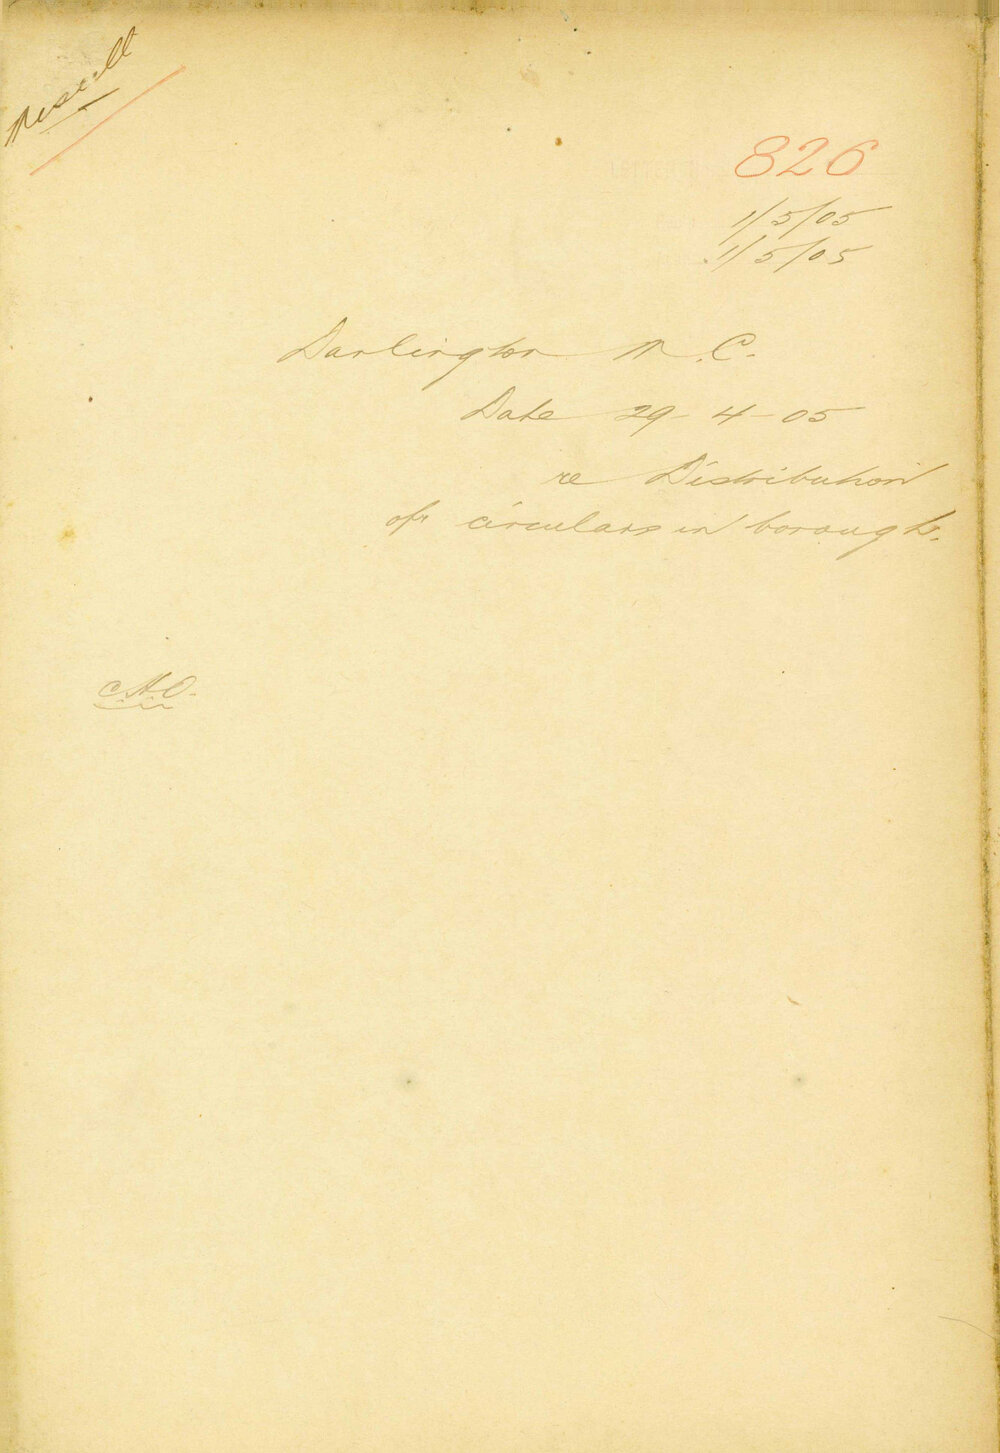 Miscell
826
1/5/05
1/5/05
Darlington M.C.
Date 29-4-05
re Distribution
of circulars in borough.